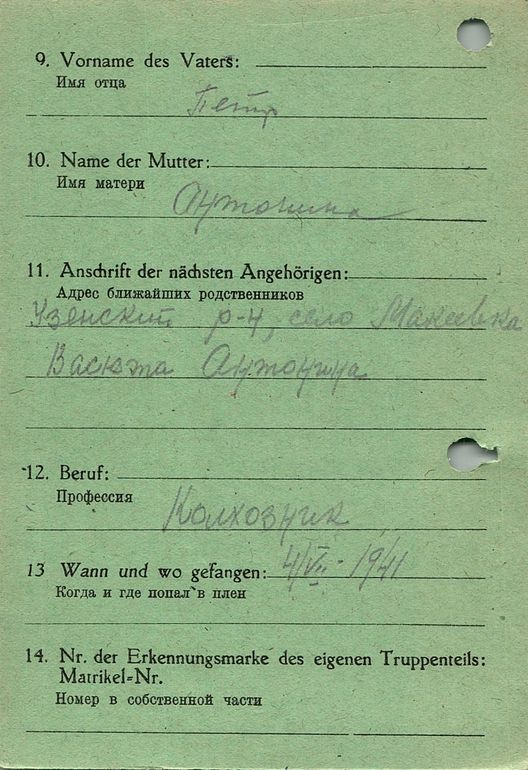 9. Vorname des Vaters:
Имя отца
Петр
10. Name der Mutter:
Имя матери
Антонина
11. Anschrift der nächsten Angehörigen:
Адрес ближайших родственников
Узенский р-н, село Макеевка
Васюта Антонина
12. Beruf:
Профессия
Колхозник
13 Wann und wo gefangen: 4/VII - 1941
Когда и где попал в плен
14. Nr. der Erkennungsmarke des eigenen Truppenteils:
Matrikel=Nr.
Номер в собственной части